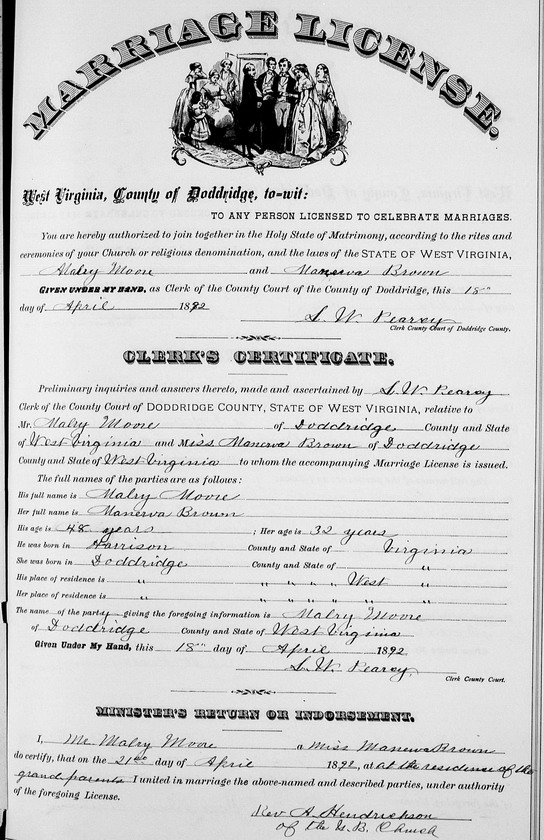 MARRIAGE LICENSE.
West Virginia, County of Doddridge, to-wit:
TO ANY PERSON LICENSED TO CELEBRATE MARRIAGES.
You are hereby authorized to join together in the Holy State of Matrimony, according to the rites and
ceremonies of your Church or religious denomination, and the laws of the STATE OF WEST VIRGINIA,
Malry Moore and Manerva Brown
GIVEN UNDER MY HAND, as Clerk of the County Court of Doddridge, this 18"
day of April 1892
L. W. Pearcy
Clerk County Court of Doddridge County.
CLERK'S CERTIFICATE.
Preliminary inquiries and answers thereto, made and ascertained by L. W. Pearcy
Clerk of the County Court of DODDRIDGE COUNTY, STATE OF WEST VIRGINIA, relative to
Mr. Malry Moore of Doddridge County and State
of West Virginia and Miss. Manerva Brown of Doddridge
County and State of West Virginia to whom the accompanying Marriage License is issued.
The full names of the parties are as follows:
His full name is Malry Moore
Her full name is Manerva Brown
His age is 48 years ; Her age is 32 years
He was born in Harrison County and State of Virginia
She was born in Doddridge County and State of "
His place of residence is " " " " " West "
Her place of residence is " " " " " " "
The name of the party giving the foregoing information is Malry Moore
of Doddridge County and State of West Virginia
Given Under My Hand, this 18" day of April 1892.
L. W. Pearcy
Clerk County Court.
MINISTER'S RETURN OR INDORSEMENT.
I, Mr Malry Moore a Miss Manerva Brown
do certify, that on the 21 day of April 1892, at at the residence of the
grand parents I united in marriage the above-named and described parties, under authority
of the foregoing License.
Rev A. Hendrickson
of the U. B. Church